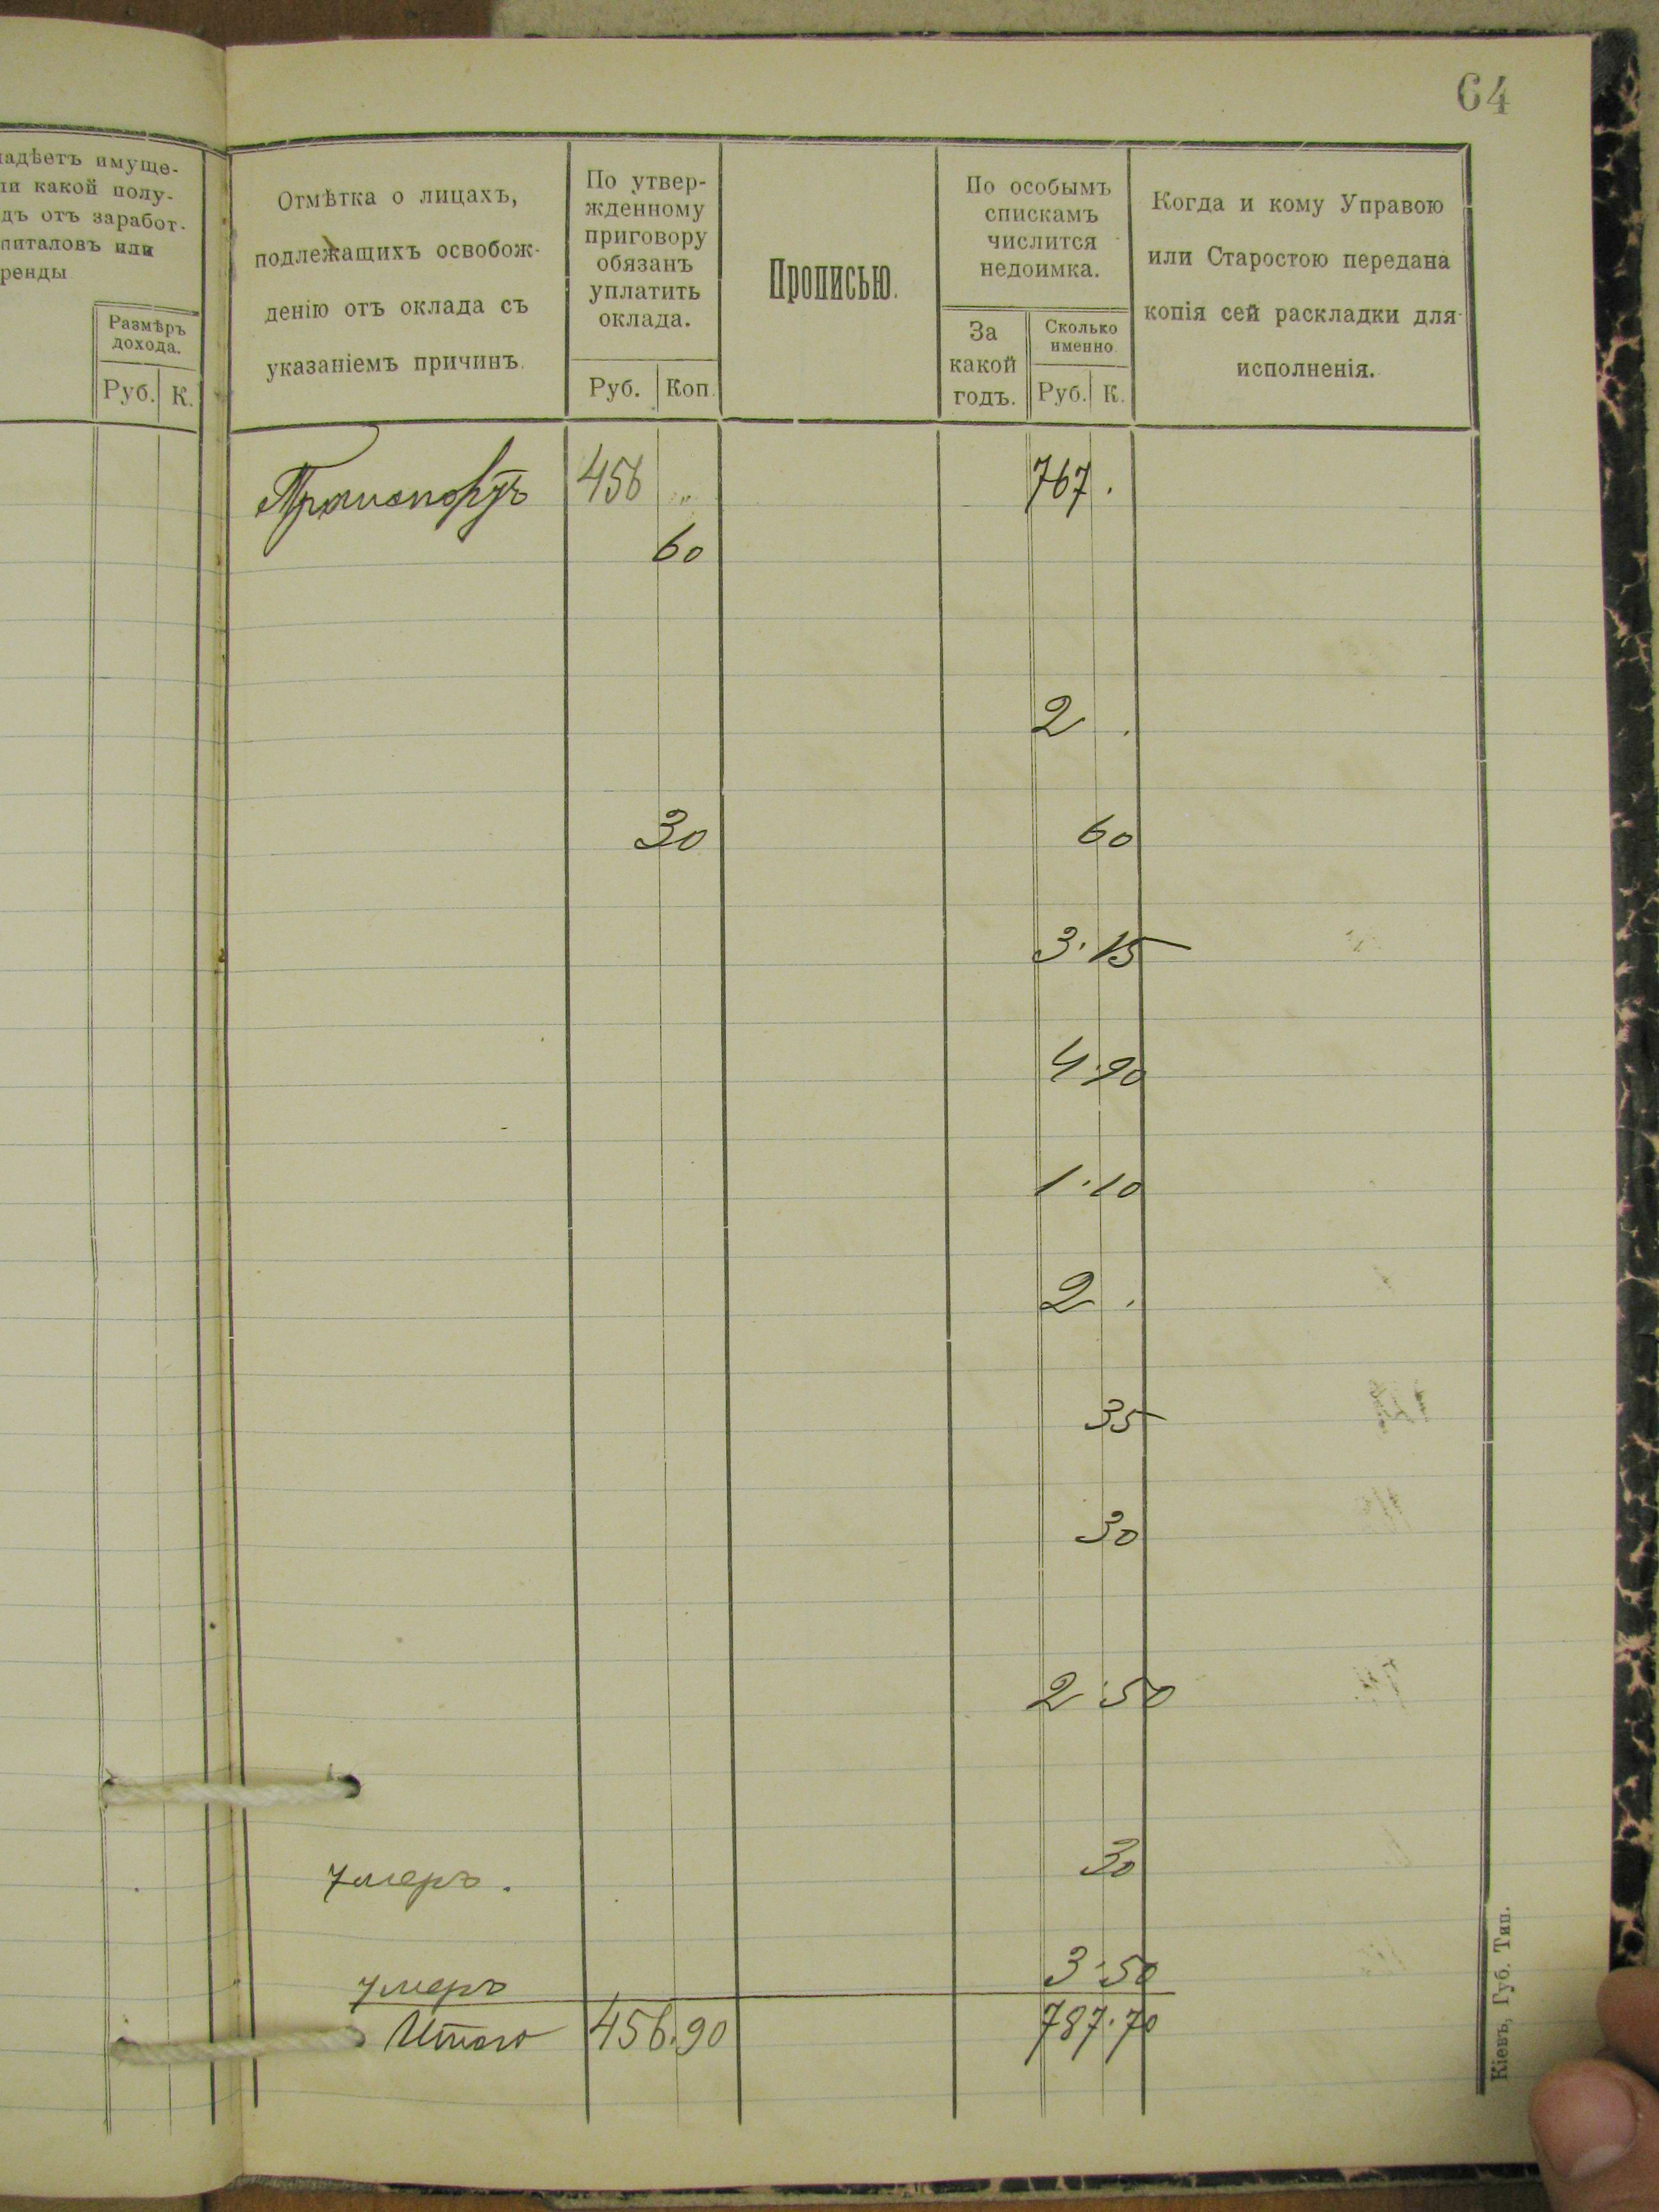 64
имуще-
какой полу-
дъ отъ заработ-
питаловъ или
ренды
Размѣръ
дохода.
Руб. К.
Отмѣтка о лицахъ,
подлежащихъ освобож-
денію отъ оклада съ
указаніемъ причинъ.
По утвер-
жденному
приговору
обязанъ
уплатить
оклада.
Руб. Коп.
Прописью.
По особымъ
спискамъ
числится
недоимка.
За
какой
годъ.
Сколько
именно.
Руб. К.
Когда и кому Управою
или Старостою передана
копія сей раскладки для
исполненія.
Транспортъ 456 " 767 .
60
2 .
30 60
3·15
4·90
1·10
2 .
35
30
2·50
умеръ. 30
умеръ 3·50
Итого 456.90 787·70
Кіевъ, Губ. Тип.